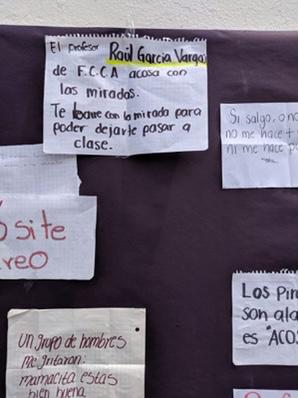 El profesor Raúl García Vargas
de F.C.C.A acosa con
las miradas.
Te barre con la mirada para
poder dejarte pasar a
clase.
Si salgo, o no
no me hace +
ni me hace
site
reo
Los
son
es "ACOS
Un grupo de hombres
me gritaron:
mamacita estas
bien buena